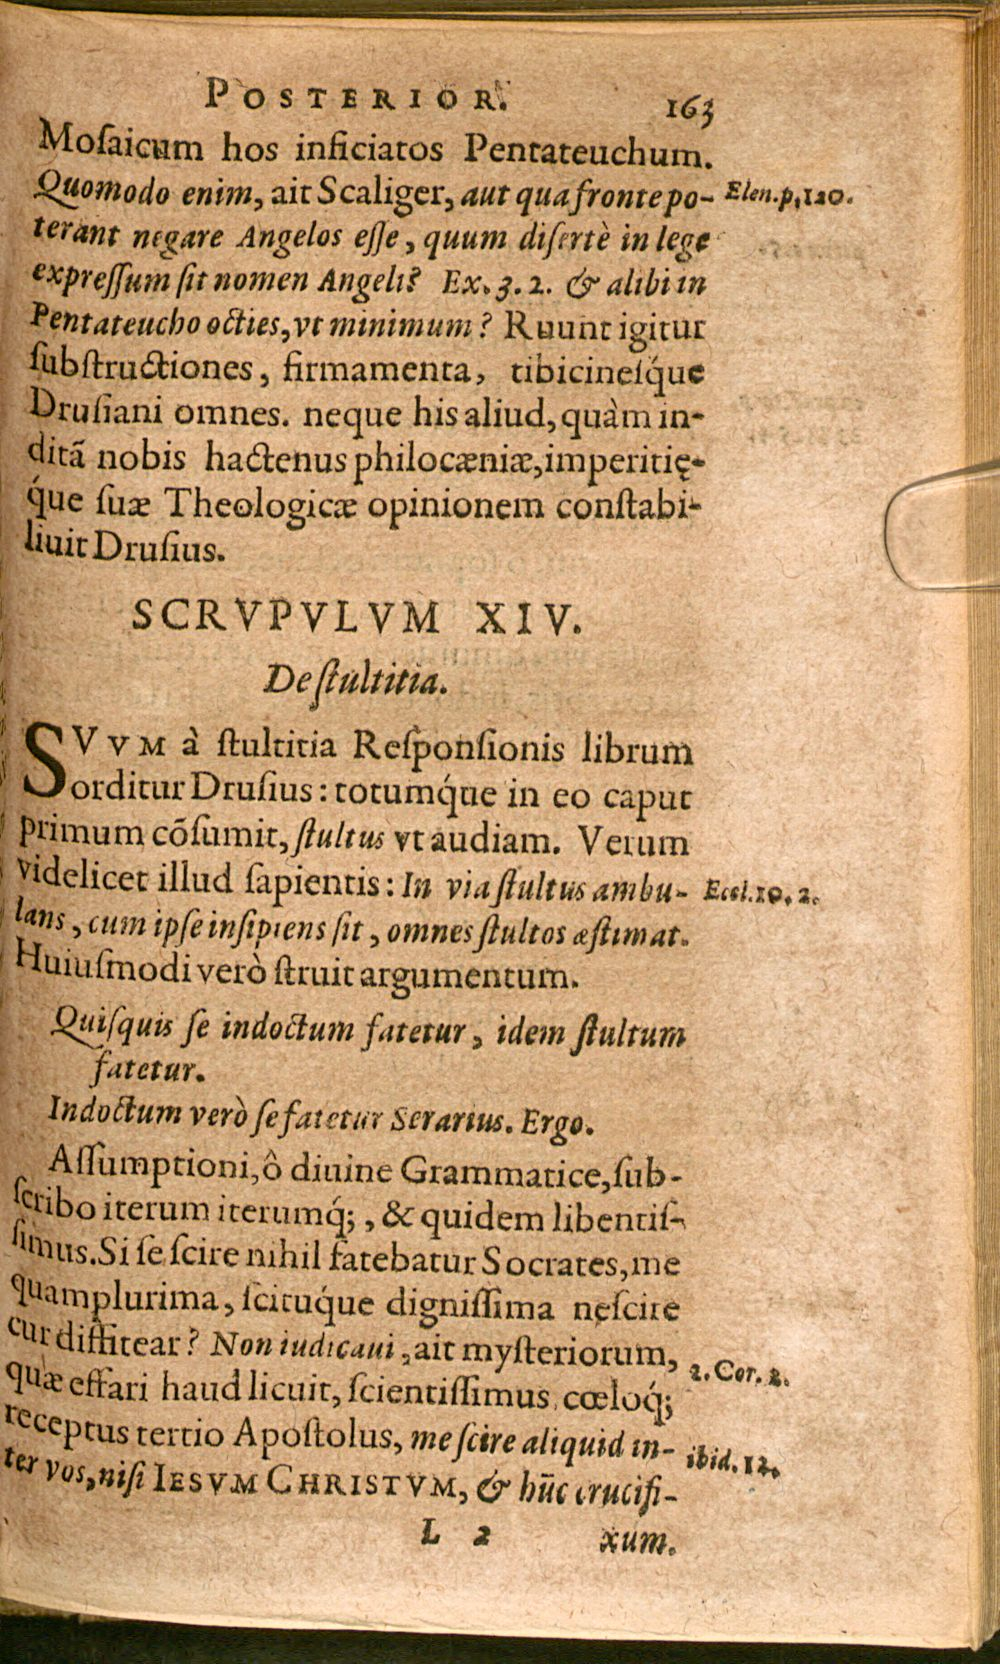 POSTERIOR. 163
Moſaicum hos inficiatos Pentateuchum.
Quomodo enim, ait Scaliger, aut qua fronte po- Elen.p,120.
terant negare Angelos eſſe, quum diſertè in lege
expreſſum ſit nomen Angeli? Ex. 3. 2. & alibi in
Pentateucho octies, vt minimum? Ruunt igitur
ſubſtructiones, firmamenta, tibicineſq́ue
Druſiani omnes. neque his aliud, quàm in-
ditã nobis hactenus philocæniæ, imperitię-
q́ue ſuæ Theologicæ opinionem conſtabi-
liuit Druſius.
SCRVPVLVM XIV.
De ſtultitia.
SVVM à ſtultitia Reſponſionis librum
orditur Druſius: totumq́ue in eo caput
primum cõſumit, ſtultus vt audiam. Verum
videlicet illud ſapientis: In via ſtultus ambu- Eccl.10.2.
lans, cum ipſe inſipiens ſit, omnes ſtultos æſtimat.
Huiuſmodi verò ſtruit argumentum.
Quiſquis ſe indoctum fatetur, idem ſtultum
fatetur.
Indoctum verò ſe fatetur Serarius. Ergo.
Aſſumptioni, ô diuine Grammatice, ſub-
ſcribo iterum iterumq́;, & quidem libentiſ-
ſimus. Si ſe ſcire nihil fatebatur Socrates, me
quamplurima, ſcituq́ue digniſſima neſcire
cur diffitear? Non iudicaui, ait myſteriorum, 2. Cor. 2.
quæ effari haud licuit, ſcientiſſimus, cœloq́;
receptus tertio Apoſtolus, me ſcire aliquid in- ibid. 12.
ter vos, niſi IESVM CHRISTVM, & hũc crucifi-
L 2 xum.